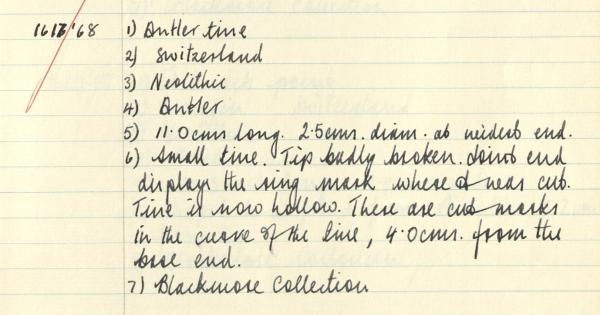 1617/'68 1) Antler tine
2) Switzerland
3) Neolithic
4) Antler
5) 11.0cms long. 2.5cms. diam. at widest end.
6) Small tine. Tip badly broken. Joint end
displays the ring mark where it was cut.
Tine is now hollow. There are cut marks
in the curve of the tine, 4.0cms. from the
base end.
7) Blackmore Collection